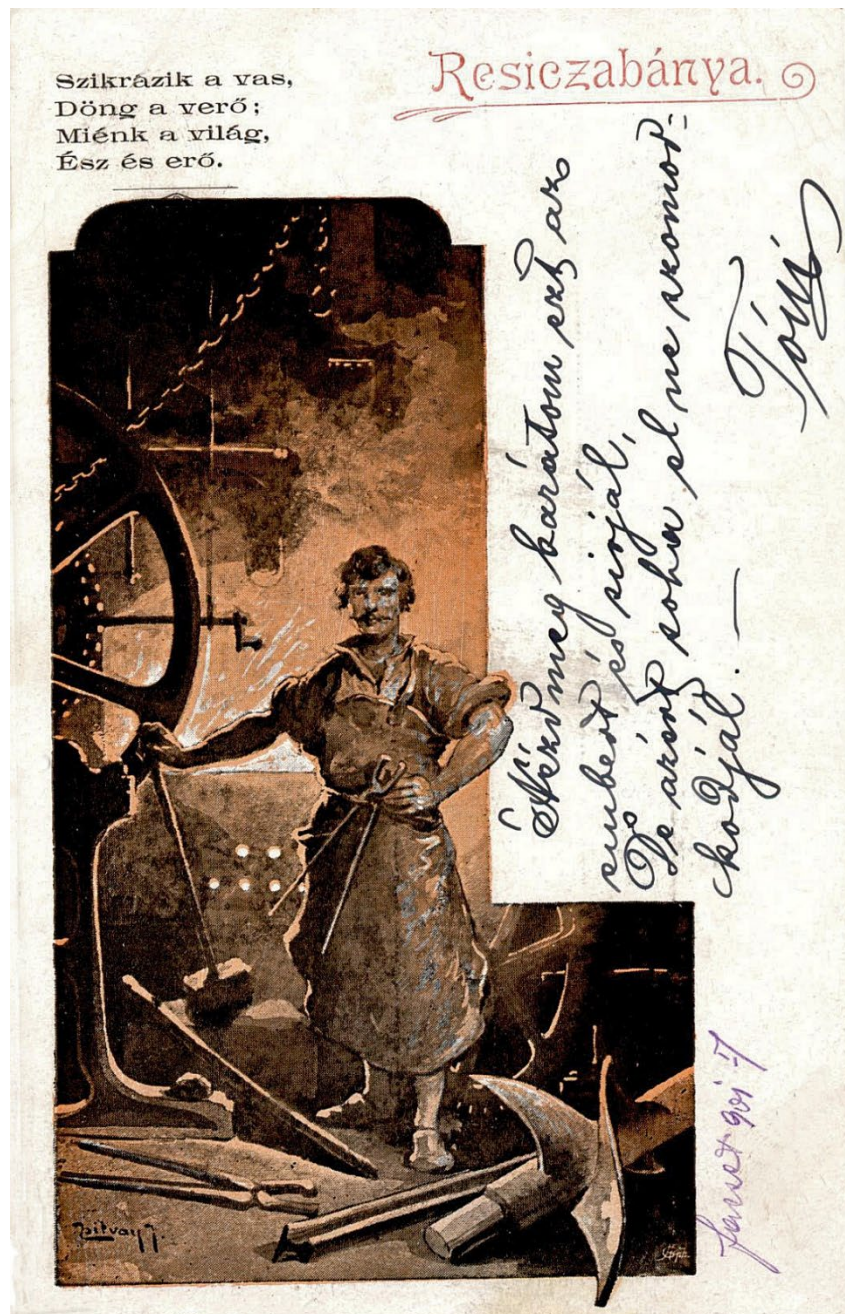 Szikrázik a vas,
Döng a verő;
Miénk a világ,
Ész és erő.
Resiczabánya.
Nézd meg barátom ezt az
embert és sirjál,
De azért soha el ne szomod=
kodjál. —
Tóni
Zsitvay J.